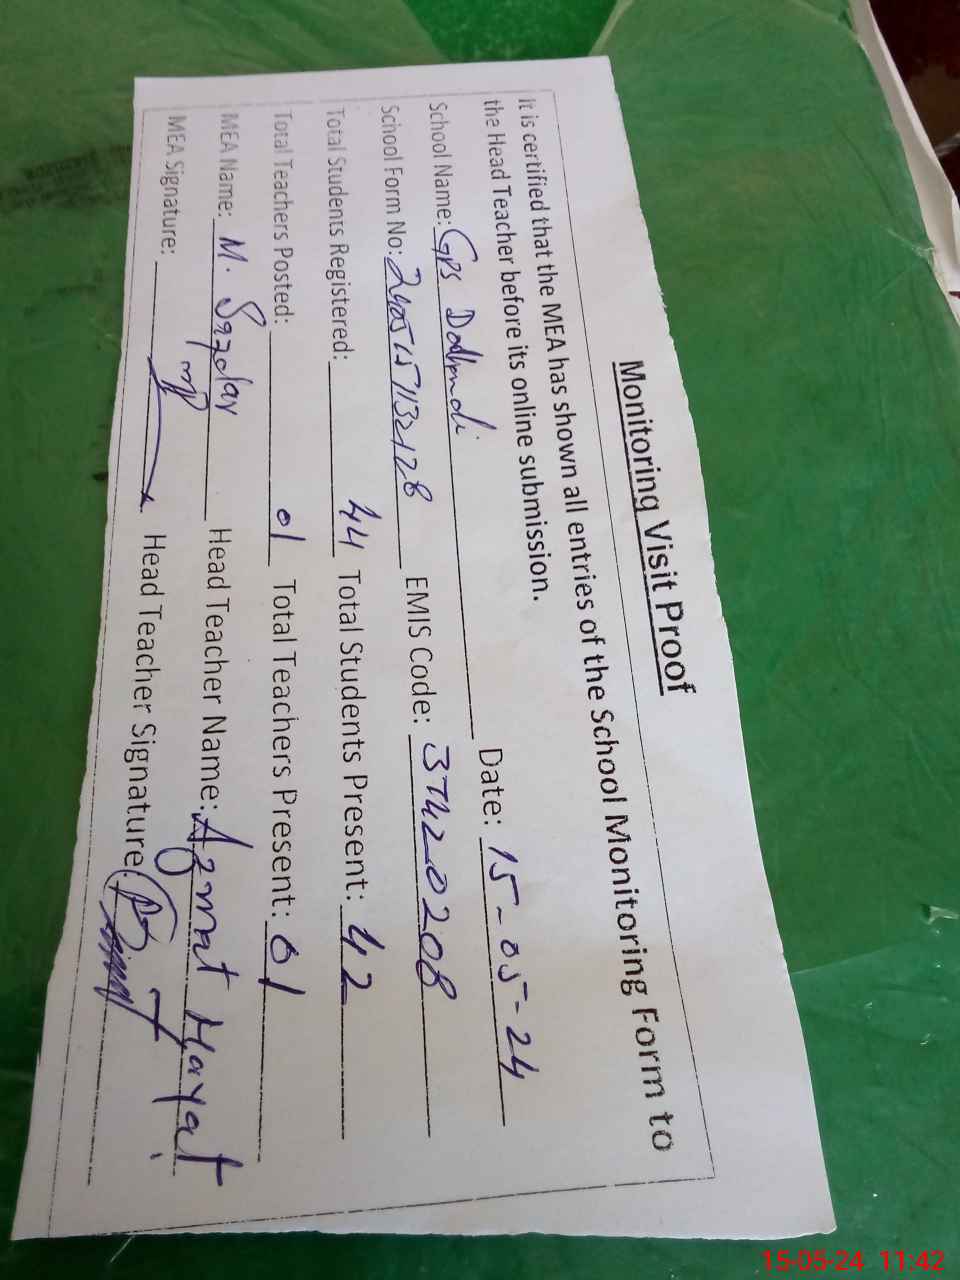 Monitoring Visit Proof
It is certified that the MEA has shown all entries of the School Monitoring Form to
the Head Teacher before its online submission.
School Name: GPS Date: 15-05-24
School Form No: EMIS Code: 37420208
Total Students Registered: 44 Total Students Present: 42
Total Teachers Posted: 01 Total Teachers Present: 01
MEA Name: M. Head Teacher Name: Azmat Hayat
MEA Signature: Head Teacher Signature:
15-05-24 11:42